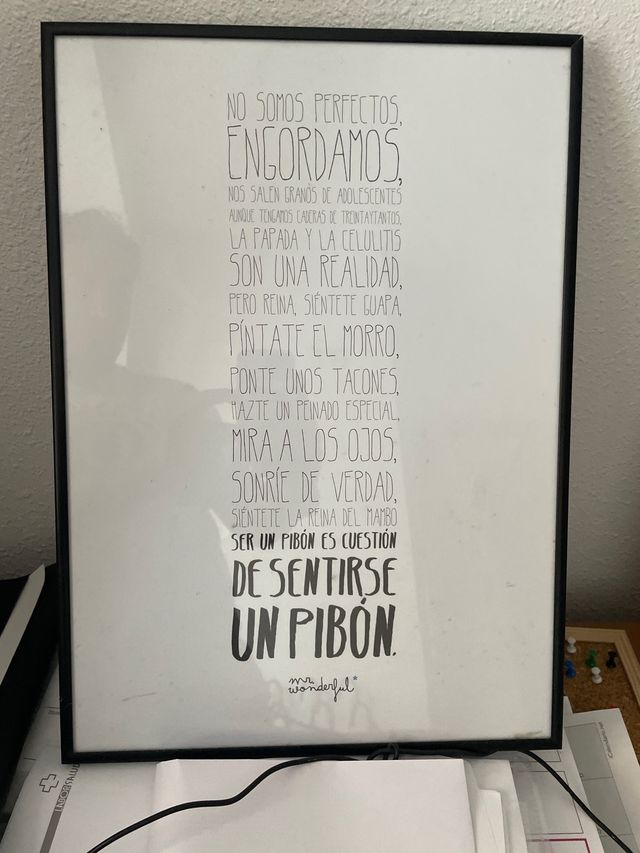 NO SOMOS PERFECTOS,
ENGORDAMOS,
NOS SALEN GRANOS DE ADOLESCENTES
AUNQUE TENGAMOS CADERAS DE TREINTAYTANTOS.
LA PAPADA Y LA CELULITIS
SON UNA REALIDAD,
PERO REINA, SIÉNTETE GUAPA,
PÍNTATE EL MORRO,
PONTE UNOS TACONES,
HAZTE UN PEINADO ESPECIAL,
MIRA A LOS OJOS,
SONRÍE DE VERDAD,
SIÉNTETE LA REINA DEL MAMBO
SER UN PIBÓN ES CUESTIÓN
DE SENTIRSE
UN PIBÓN.
mr.
wonderful*